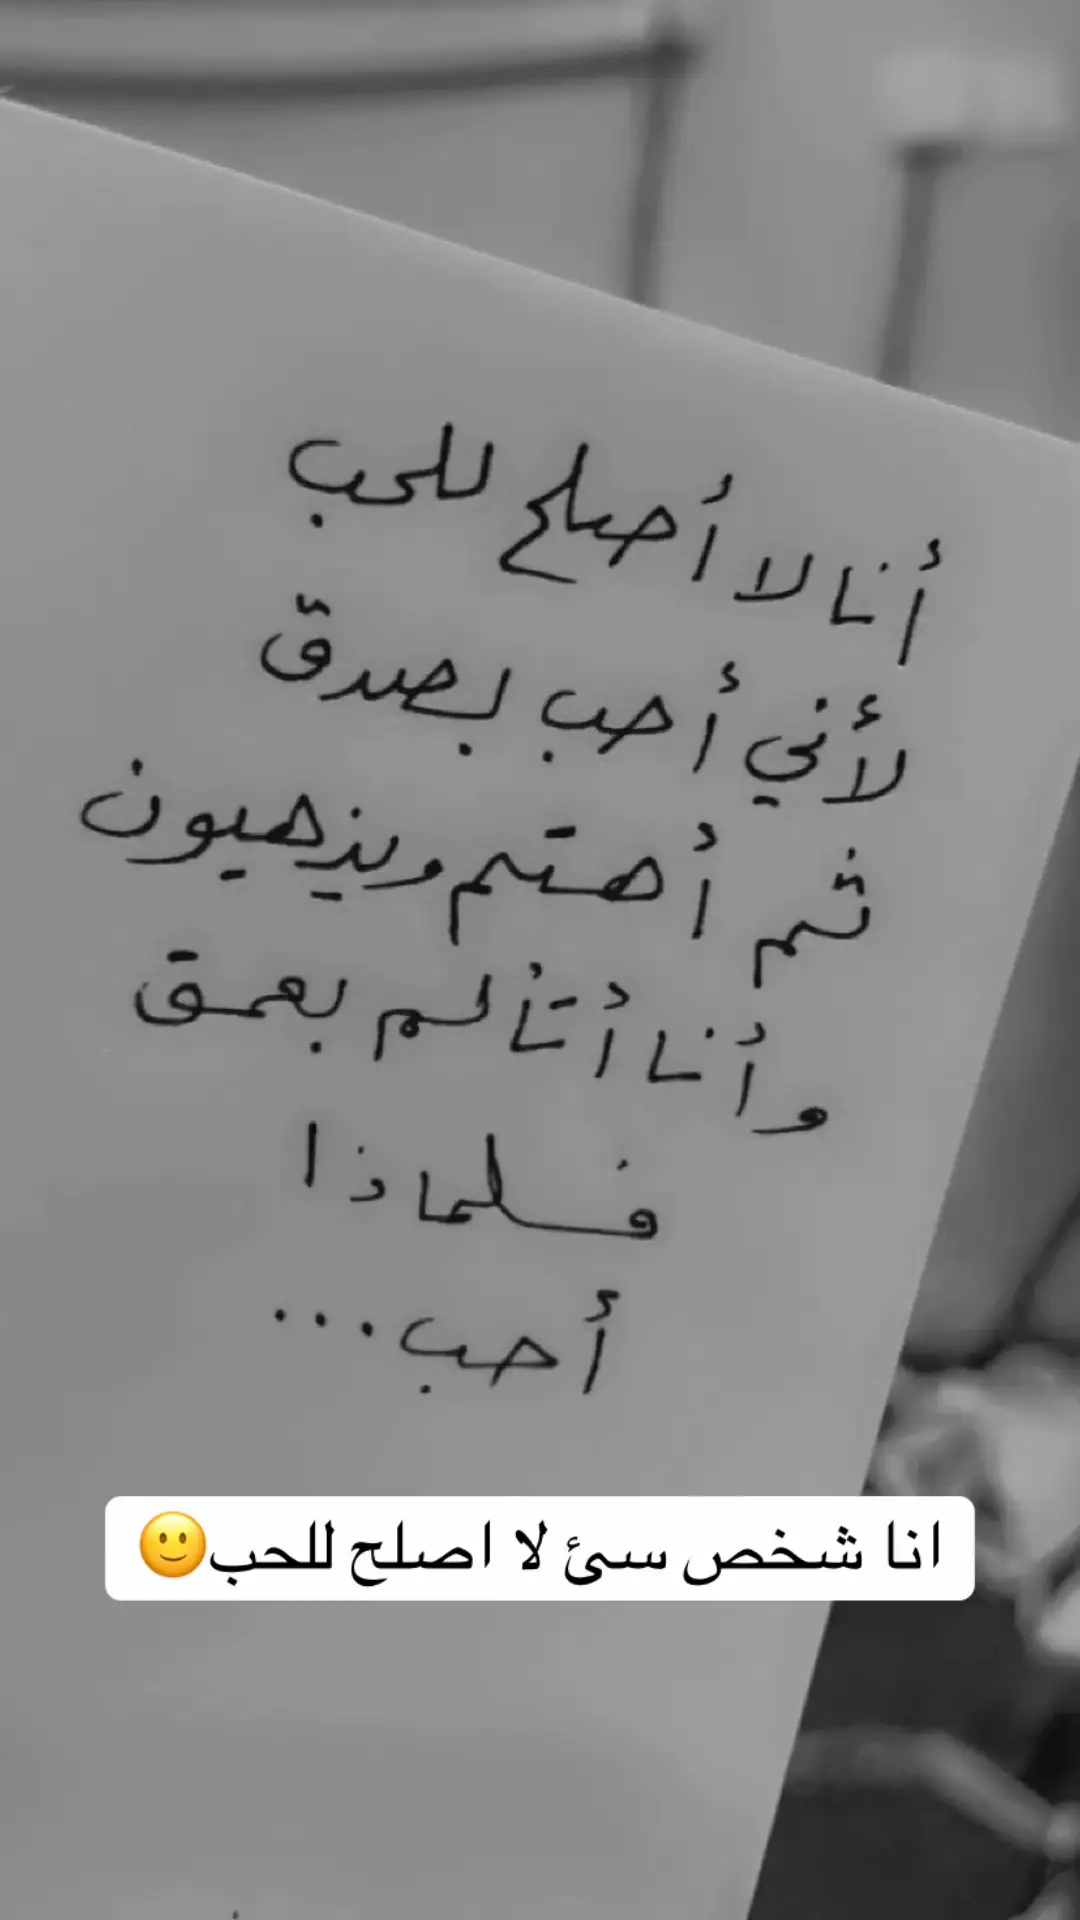 أنا لا أصلح للحب
لأني أحب بصدق
ثم أهتم ويذهبون
وأنا أتألم بعمق
فلماذا
أحب...
انا شخص سئ لا اصلح للحب🙂